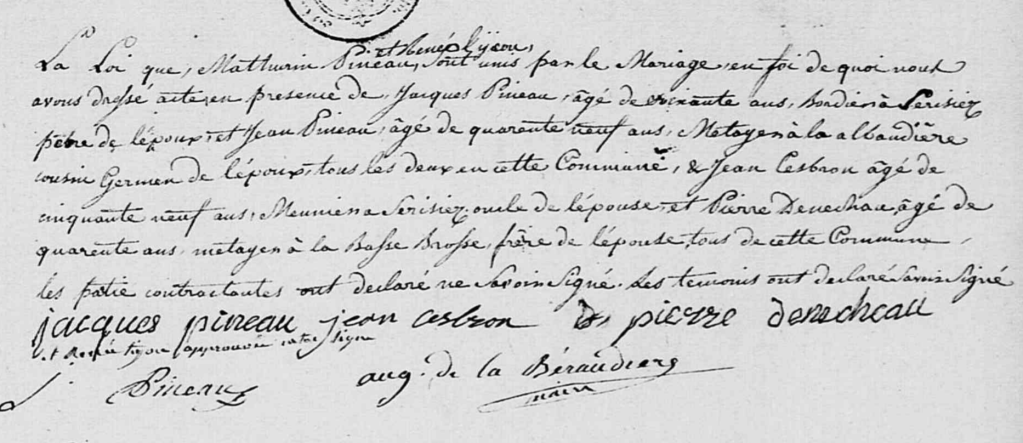 et Renée Lyon,
La Loi que, Mathurin Pineau, sont unis par le Mariage, en foi de quoi nous
avons dressé acte, en presence de, Jacques Pineau, âgé de soixante ans, Bordier à Serisiez
père de l'époux, et Jean Pineau, âgé de quarante neuf ans, Metayer à la albaudière
cousin Germen de l'époux, tous les deux en cette Commune, & Jean Cesbron âgé de
cinquante neuf ans, Meunier a Serisiez, oncle de l'épouse, et Pierre Denechau, âgé de
quarente ans, metayer à la Basse Brosse, frère de l'épouse, tous de cette Commune,
les patie contractantes ont declaré ne Savoir Signé. Les temoins ont declaré Savoir Signé
jacques pineau jean cesbron pierre denecheau
et Renée Lyon approuvée
Pineau aug. de la Béraudiere
maire